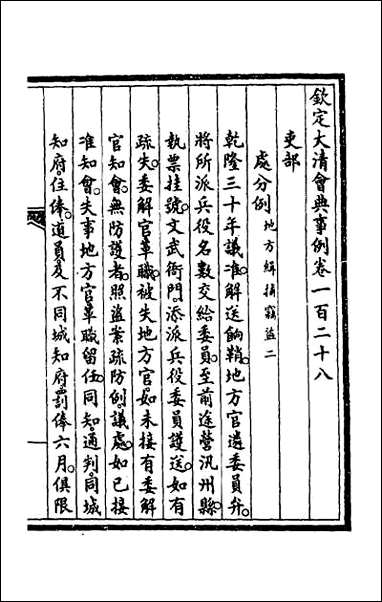 欽定大清會典事例卷一百二十八
吏部
處分例地方緝捕竊盜二
乾隆三十年議准。解送餉鞘。地方官遴委員弁。
將所派兵役名數交給委員。至前途營汛州縣。
執票挂號。文武衙門。添派兵役委員護送。如有
疏失。委解官革職。被失地方官。如未接有委解
官知會。無防護者。照盜案疏防例議處。如已接
准知會。失事地方官革職留任。同知。通判。同城
知府。住俸。道員。及不同城知府。罰俸六月。俱限